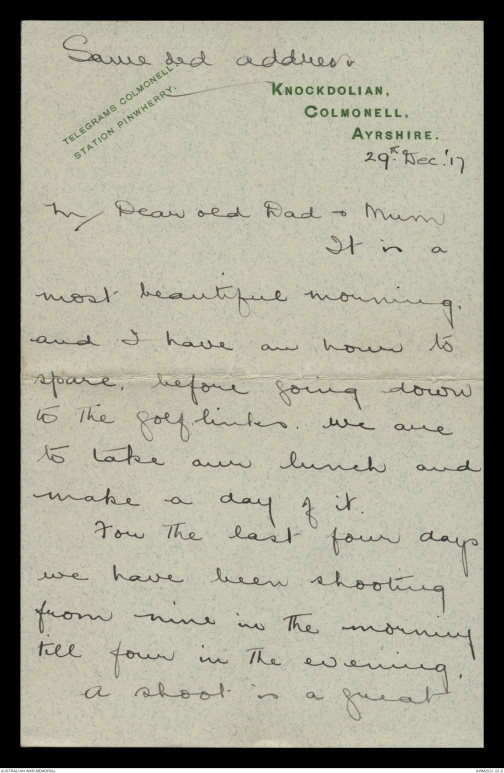 Same old address
TELEGRAMS COLMONELL.
STATION PINWHERRY.
KNOCKDOLIAN,
COLMONELL,
AYRSHIRE.
29th Dec. '17
My Dear old Dad & Mum
It is a
most beautiful morning,
and I have an hour to
spare, before going down
to the golf links. We are
to take our lunch and
make a day of it.
For the last four days
we have been shooting
from nine in the morning
till four in the evening.
A shoot is a great
AUSTRALIAN WAR MEMORIAL